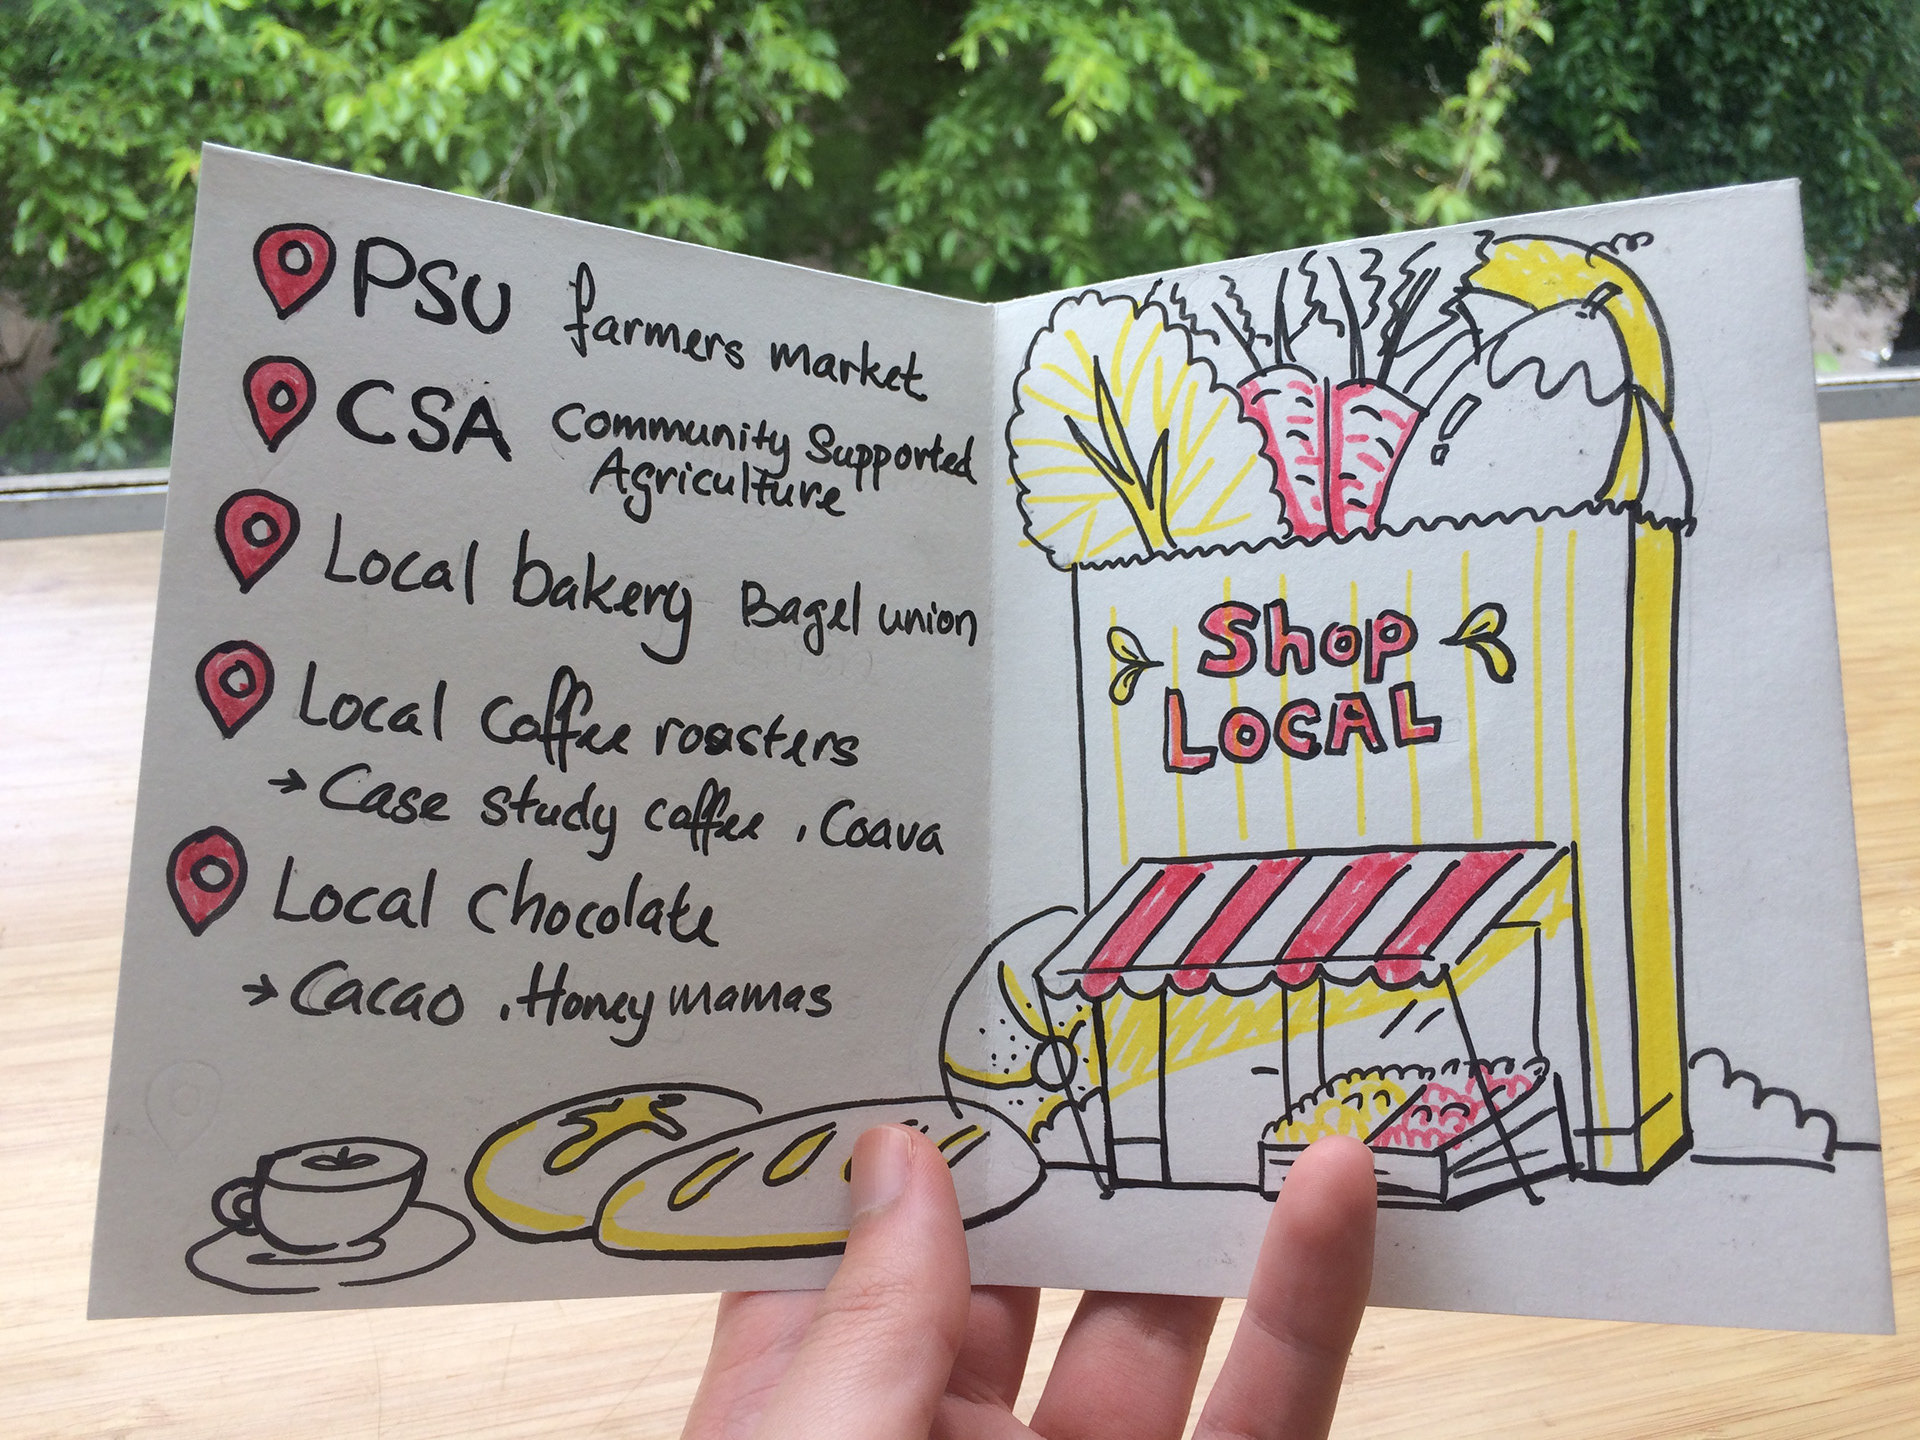 PSU farmers market
CSA Community Supported
Agriculture
Local bakery Bagel union
Local coffee roasters
→ Case study coffee , Coava
Local chocolate
→ Cacao , Honey mamas
Shop
LOCAL